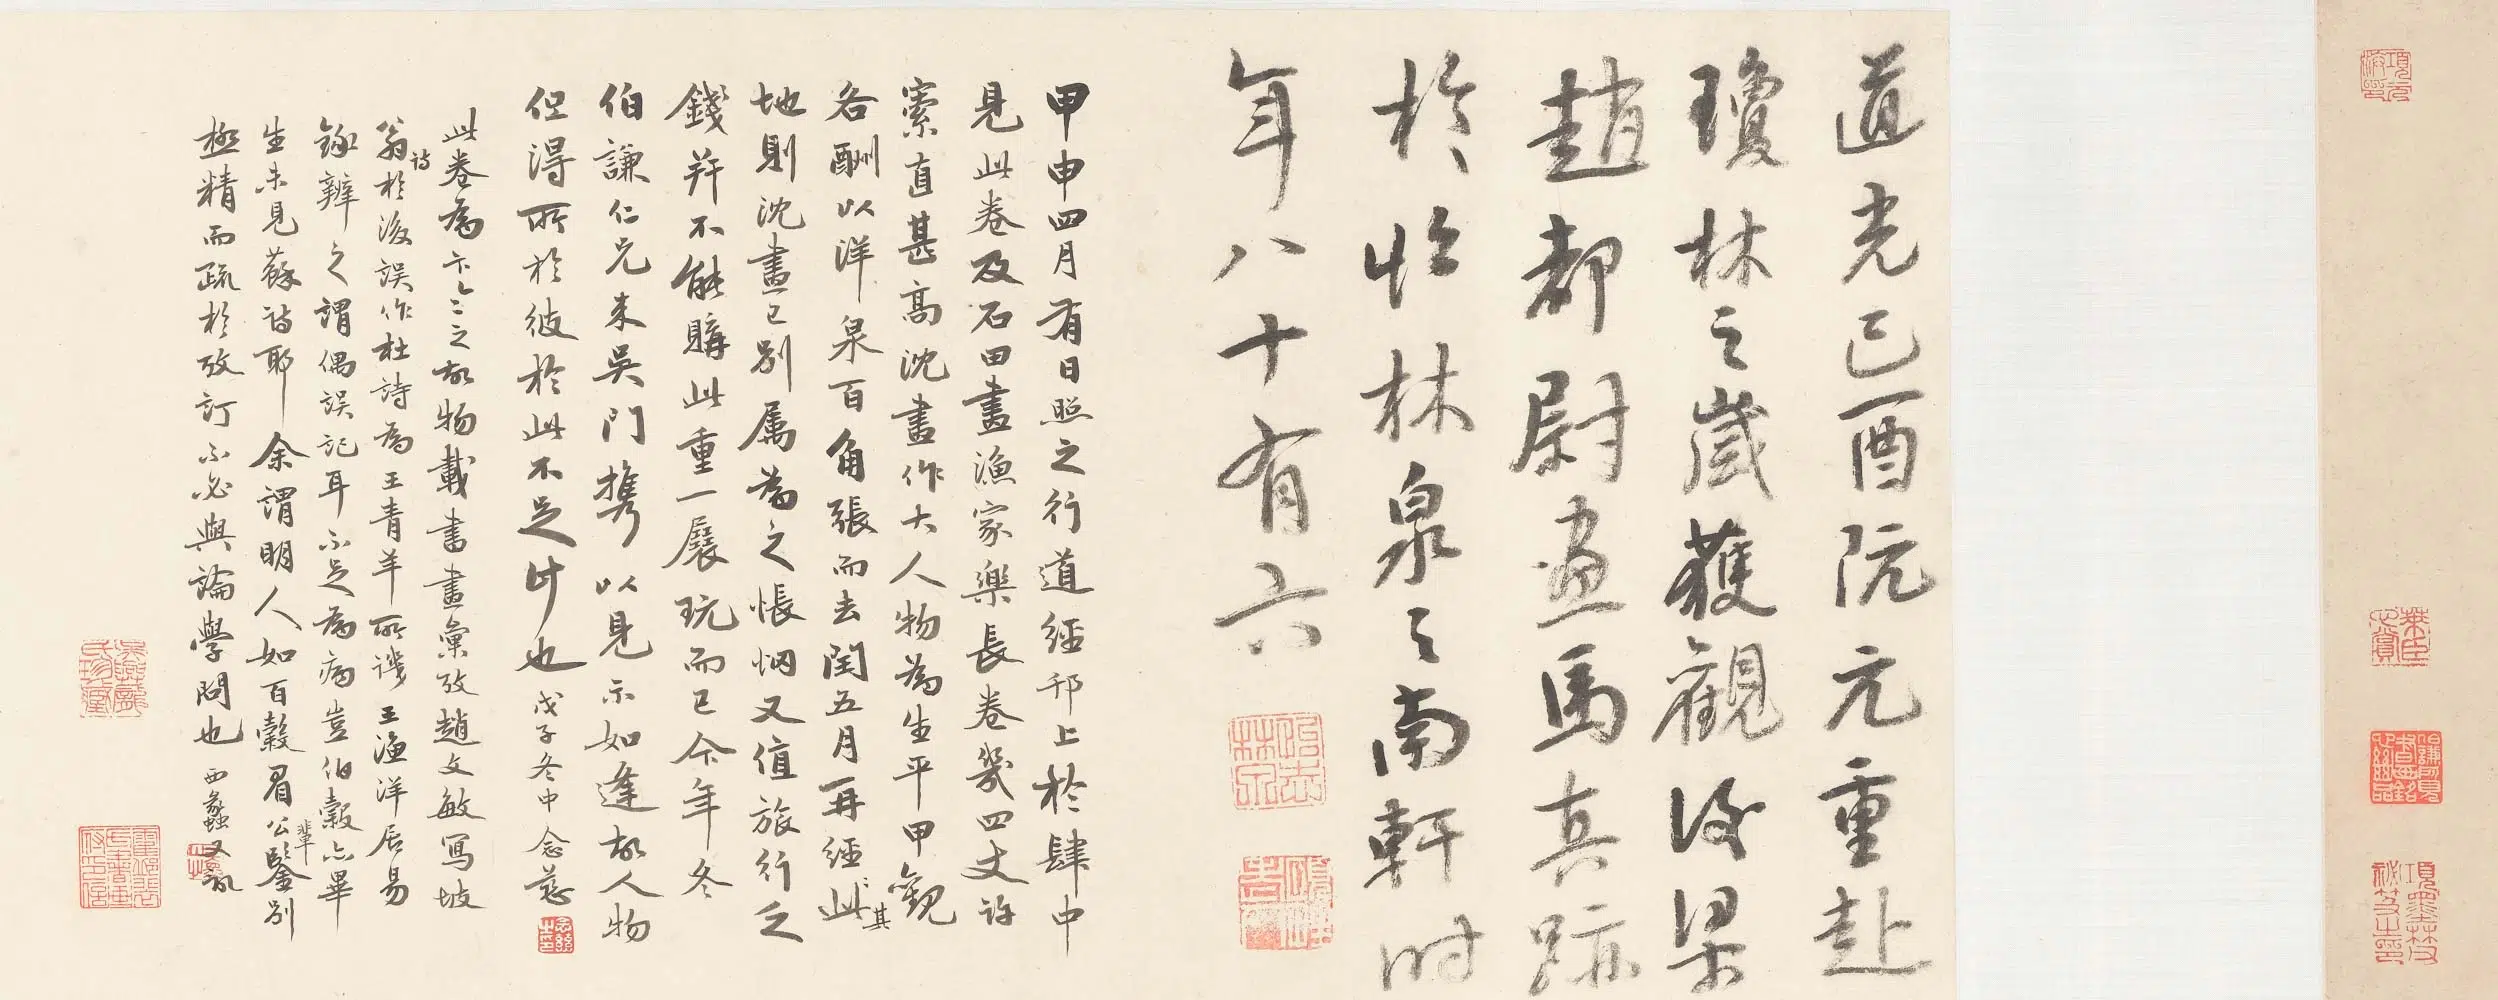 道光己酉阮元重赴
瓊林之歲獲觀後梁
趙都尉畫馬真跡
於怡林泉之南軒時
年八十有六
甲申四月有日照之行道經邗上於肆中
見此卷及石田畫漁家樂長卷幾四丈許
索直甚高沈畫作大人物為生平甲觀
各酬以洋泉百角張而去閏五月再經此其
地則沈畫已別屬為之悵惘又值旅行乏
錢并不能購此重一展玩而已今年冬
伯謙仁兄来吴門攜以見示如逢故人物
但得所於彼於此不足計也 戊子冬中念慈
此卷為卞令之故物載書畫彙攷趙文敏寫坡
翁詩於後誤作杜詩為王青羊所譏王漁洋居易
錄辨之謂偶誤記耳不足為病豈伯榖亦畢
生未見蘇詩耶余謂明人如百榖眉公輩鑒別
極精而疏於攷訂不必與論學問也 西蠡又記